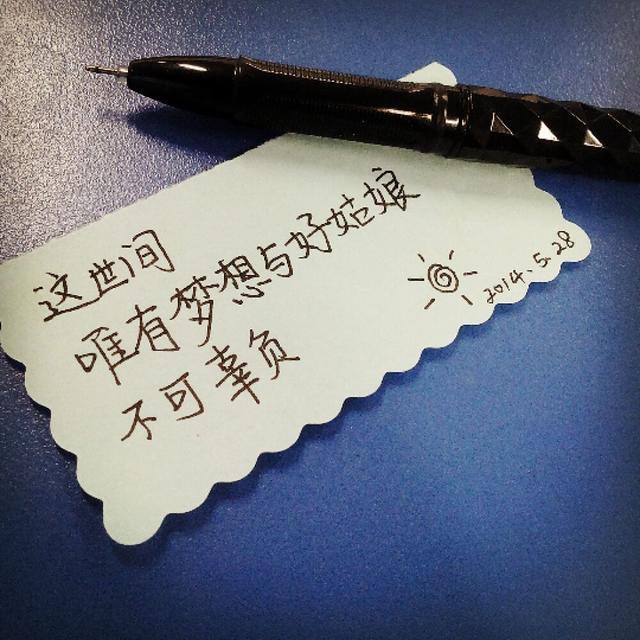 这世间
唯有梦想与好姑娘
不可辜负
2014.5.28